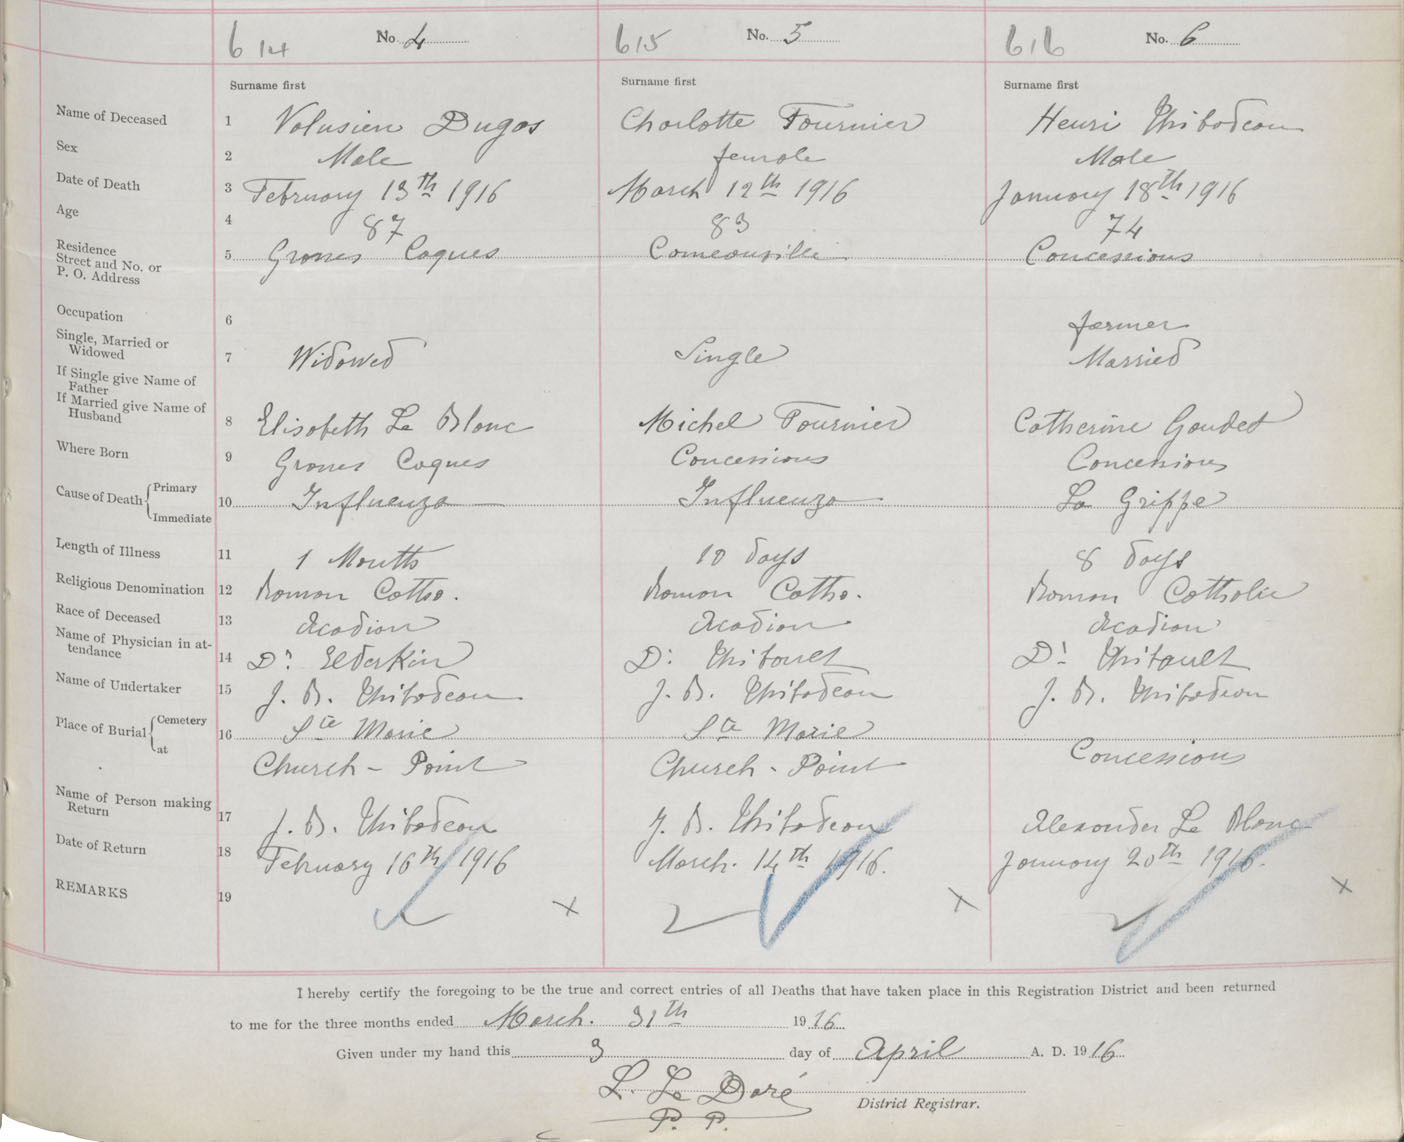 614 No. 4 615 No. 5 616 No. 6
Surname first Surname first Surname first
Name of Deceased 1 Volusien Dugas Charlotte Fournier Henri Thibodeau
Sex 2 Male female Male
Date of Death 3 February 13th 1916 March 12th 1916 January 18th 1916
Age 4 87 83 74
Residence
Street and No. or
P. O. Address 5 Grosses Coques Comeauville Concessions
Occupation 6 farmer
Single, Married or
Widowed 7 Widowed Single Married
If Single give Name of
Father
If Married give Name of
Husband 8 Elisabeth Le Blanc Michel Fournier Catherine Gaudet
Where Born 9 Grosses Coques Concessions Concessions
Cause of Death Primary
Immediate 10 Influenza Influenza La Grippe
Length of Illness 11 1 Month 10 days 8 days
Religious Denomination 12 Roman Catho. Roman Catho. Roman Catholic
Race of Deceased 13 Acadian Acadian Acadian
Name of Physician in at-
tendance 14 Dr Elderkin Dr Thibault Dr Thibault
Name of Undertaker 15 J. B. Thibodeau J. B. Thibodeau J. B. Thibodeau
Place of Burial Cemetery
at 16 Ste Marie Ste Marie
Church - Point Church - Point Concessions
Name of Person making
Return 17 J. B. Thibodeau J. B. Thibodeau Alexander Le Blanc
Date of Return 18 February 16th 1916 March. 14th 1916. January 20th 1916.
REMARKS 19 x x x
I hereby certify the foregoing to be the true and correct entries of all Deaths that have taken place in this Registration District and been returned
to me for the three months ended March. 31th 1916
Given under my hand this 3 day of April A. D. 1916
L. Le Doré
District Registrar.
P. P.